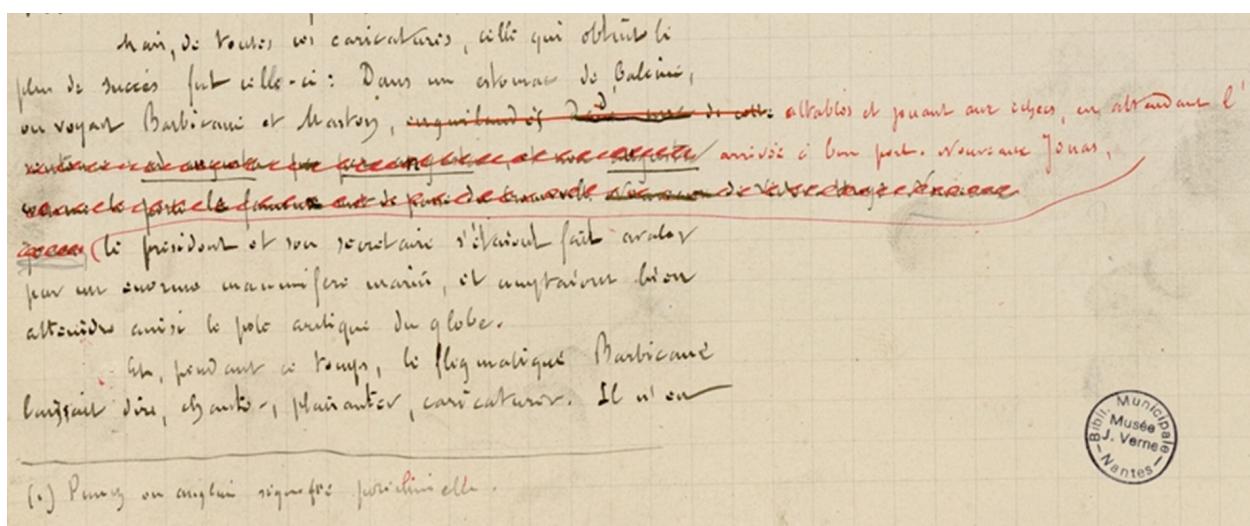 Mais, de toutes ces caricatures, celle qui obtint le
plus de succès fut celle-ci : Dans un estomac de Baleine,
on voyait Barbicane et Maston, attablés et jouant aux échecs, en attendant l'
arrivée à bon port. Nouveaux Jonas,
le président et son secrétaire s'étaient fait avaler
par un énorme mammifère marin, et comptaient bien
atteindre ainsi le pôle arctique du globe.
Et, pendant ce temps, le flegmatique Barbicane
laissait dire, chanter, plaisanter, caricaturer. Il n'en
(1) Punch en anglais signifie polichinelle.
Bibli. Municipale
Musée
J. Verne
Nantes